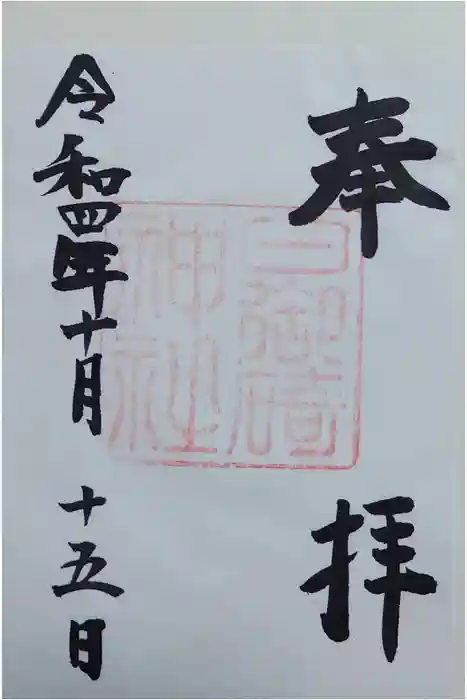 奉拝
三御﨑神社
令和四年十月十五日